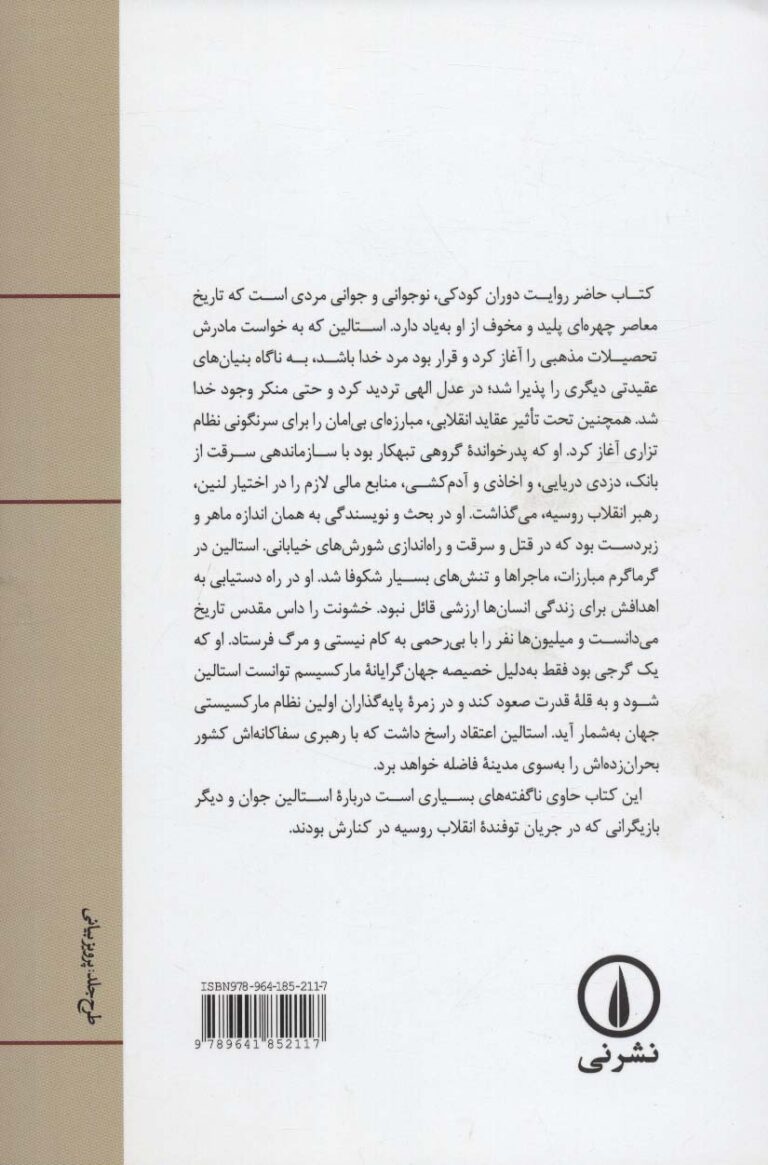 کتاب حاضر روایت دوران کودکی، نوجوانی و جوانی مردی است که تاریخ
معاصر چهره‌ای پلید و مخوف از او به‌یاد دارد. استالین که به خواست مادرش
تحصیلات مذهبی را آغاز کرد و قرار بود مرد خدا باشد، به ناگاه بنیان‌های
عقیدتی دیگری را پذیرا شد؛ در عدل الهی تردید کرد و حتی منکر وجود خدا
شد. همچنین تحت تأثیر عقاید انقلابی، مبارزه‌ای بی‌امان را برای سرنگونی نظام
تزاری آغاز کرد. او که پدرخواندهٔ گروهی تبهکار بود با سازماندهی سرقت از
بانک، دزدی دریایی، و اخاذی و آدم‌کشی، منابع مالی لازم را در اختیار لنین،
رهبر انقلاب روسیه، می‌گذاشت. او در بحث و نویسندگی به همان اندازه ماهر و
زبردست بود که در قتل و سرقت و راه‌اندازی شورش‌های خیابانی. استالین در
گرماگرم مبارزات، ماجراها و تنش‌های بسیار شکوفا شد. او در راه دستیابی به
اهدافش برای زندگی انسان‌ها ارزشی قائل نبود. خشونت را داس مقدس تاریخ
می‌دانست و میلیون‌ها نفر را با بی‌رحمی به کام نیستی و مرگ فرستاد. او که
یک گرجی بود فقط به‌دلیل خصیصه جهان‌گرایانهٔ مارکسیسم توانست استالین
شود و به قلهٔ قدرت صعود کند و در زمرهٔ پایه‌گذاران اولین نظام مارکسیستی
جهان به‌شمار آید. استالین اعتقاد راسخ داشت که با رهبری سفاکانه‌اش کشور
بحران‌زده‌اش را به‌سوی مدینهٔ فاضله خواهد برد.
این کتاب حاوی ناگفته‌های بسیاری است دربارهٔ استالین جوان و دیگر
بازیگرانی که در جریان توفندهٔ انقلاب روسیه در کنارش بودند.
طرح جلد: پرویز بیانی
ISBN978-964-185-211-7
9 789641 852117
نشرنی